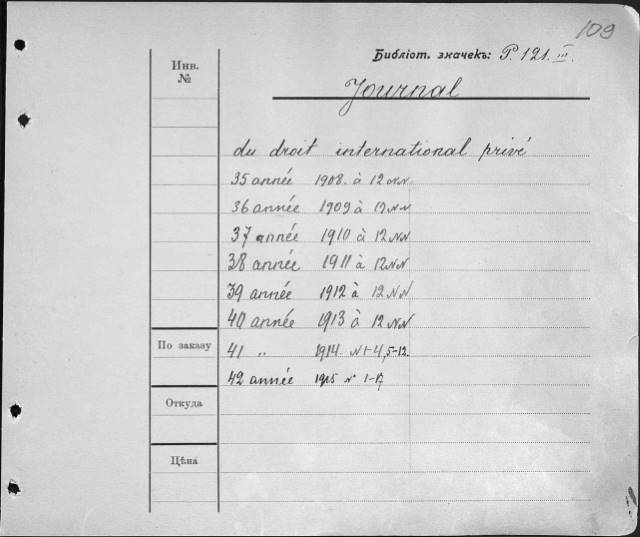 109
Библіот. значекъ: Р. 121. III.
Инв.
№
Journal
du droit international privé
35 année 1908. à 12 NN
36 année 1909 à 12 NN
37 année 1910 à 12 NN
38 année 1911 à 12 NN
39 année 1912 à 12 NN
40 année 1913 à 12 NN
По заказу
41 „ 1914. N 1-4, 5-12.
42 année 1915 N 1-12
Откуда
Цѣна